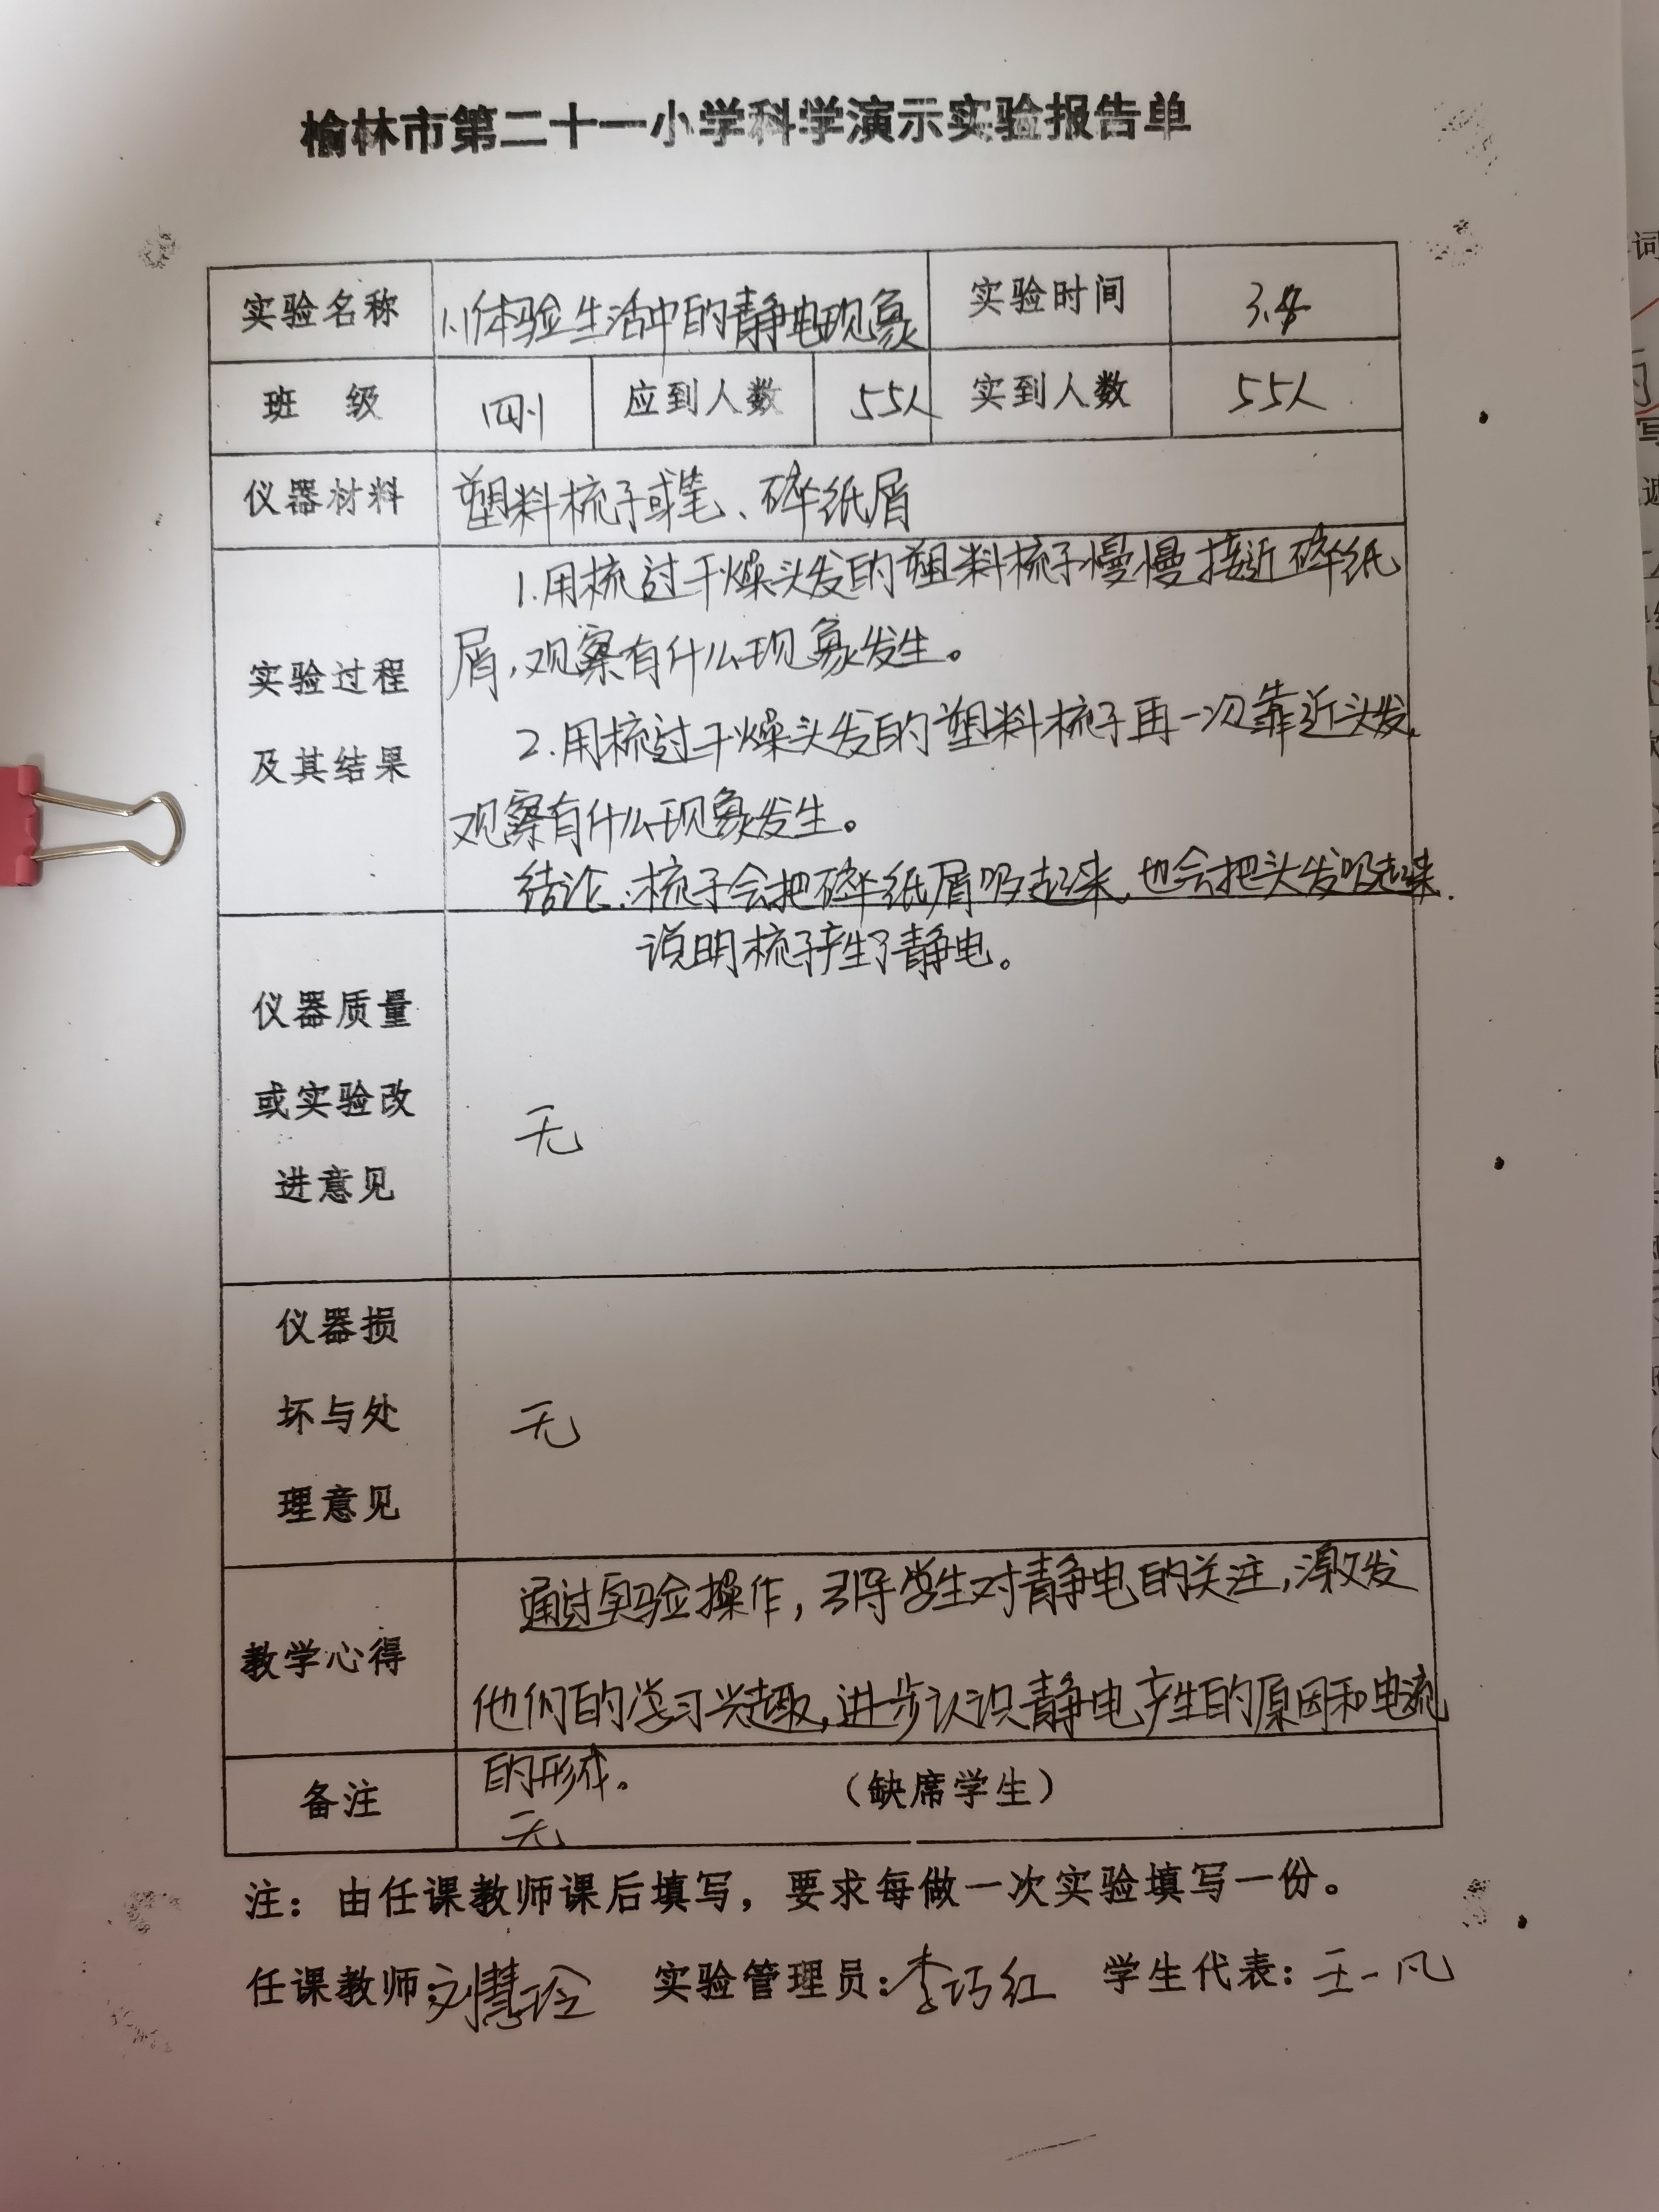 榆林市第二十一小学科学演示实验报告单
实验名称 1.1体验生活中的静电现象 实验时间
班 级 四1 应到人数 55人 实到人数 55人
仪器材料 塑料梳子或笔、碎纸屑
实验过程
及其结果
1.用梳过干燥头发的塑料梳子慢慢接近碎纸
屑,观察有什么现象发生。
2.用梳过干燥头发的塑料梳子再一次靠近头发,
观察有什么现象发生。
结论:梳子会把碎纸屑吸起来,也会把头发吸起来.
说明梳子产生了静电。
仪器质量
或实验改
进意见
无
仪器损
坏与处
理意见
无
教学心得
通过实验操作,引导学生对静电的关注,激发
他们的学习兴趣,进步认识静电产生的原因和电流
的形成。
备注 (缺席学生)
无
注:由任课教师课后填写,要求每做一次实验填写一份。
任课教师:刘慧玲 实验管理员:李巧红 学生代表:王一凡